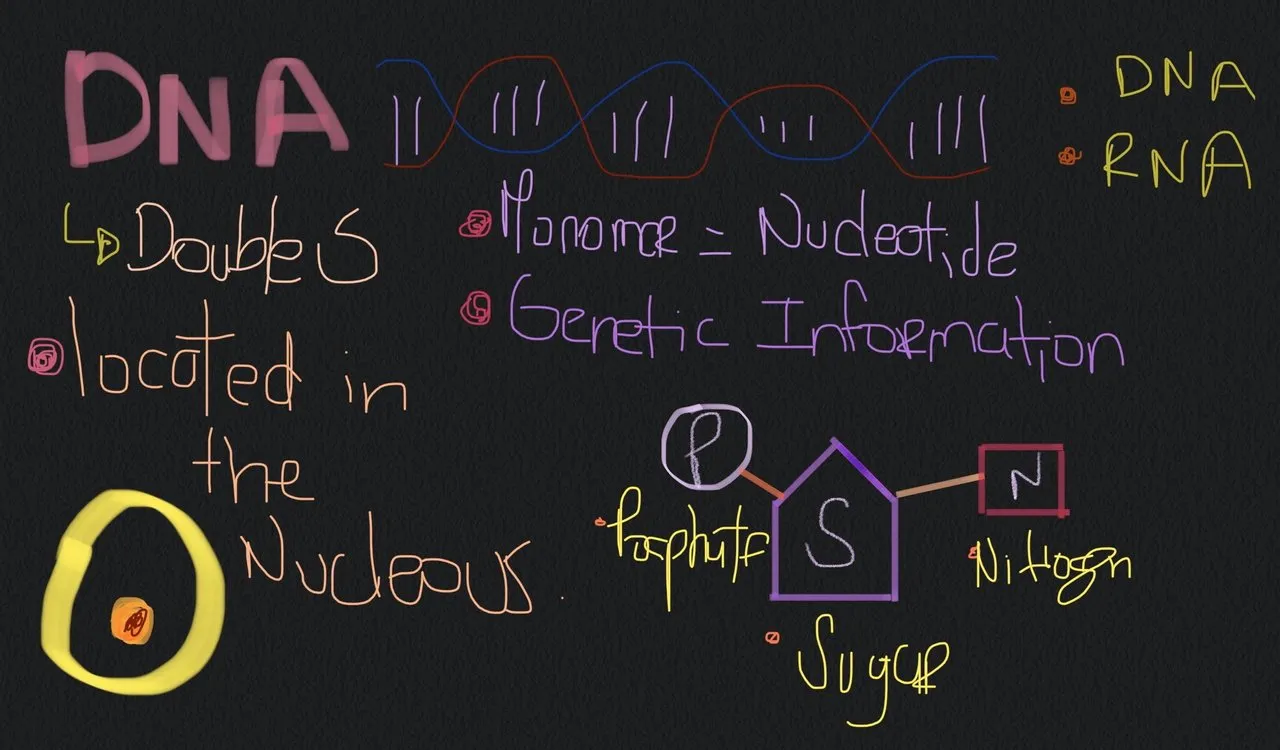 DNA
DNA
RNA
Double S
Monomer = Nucleotide
Genetic Information
located in
the
Nucleous.
P
S
N
Posphate
Nitrogen
Sugar